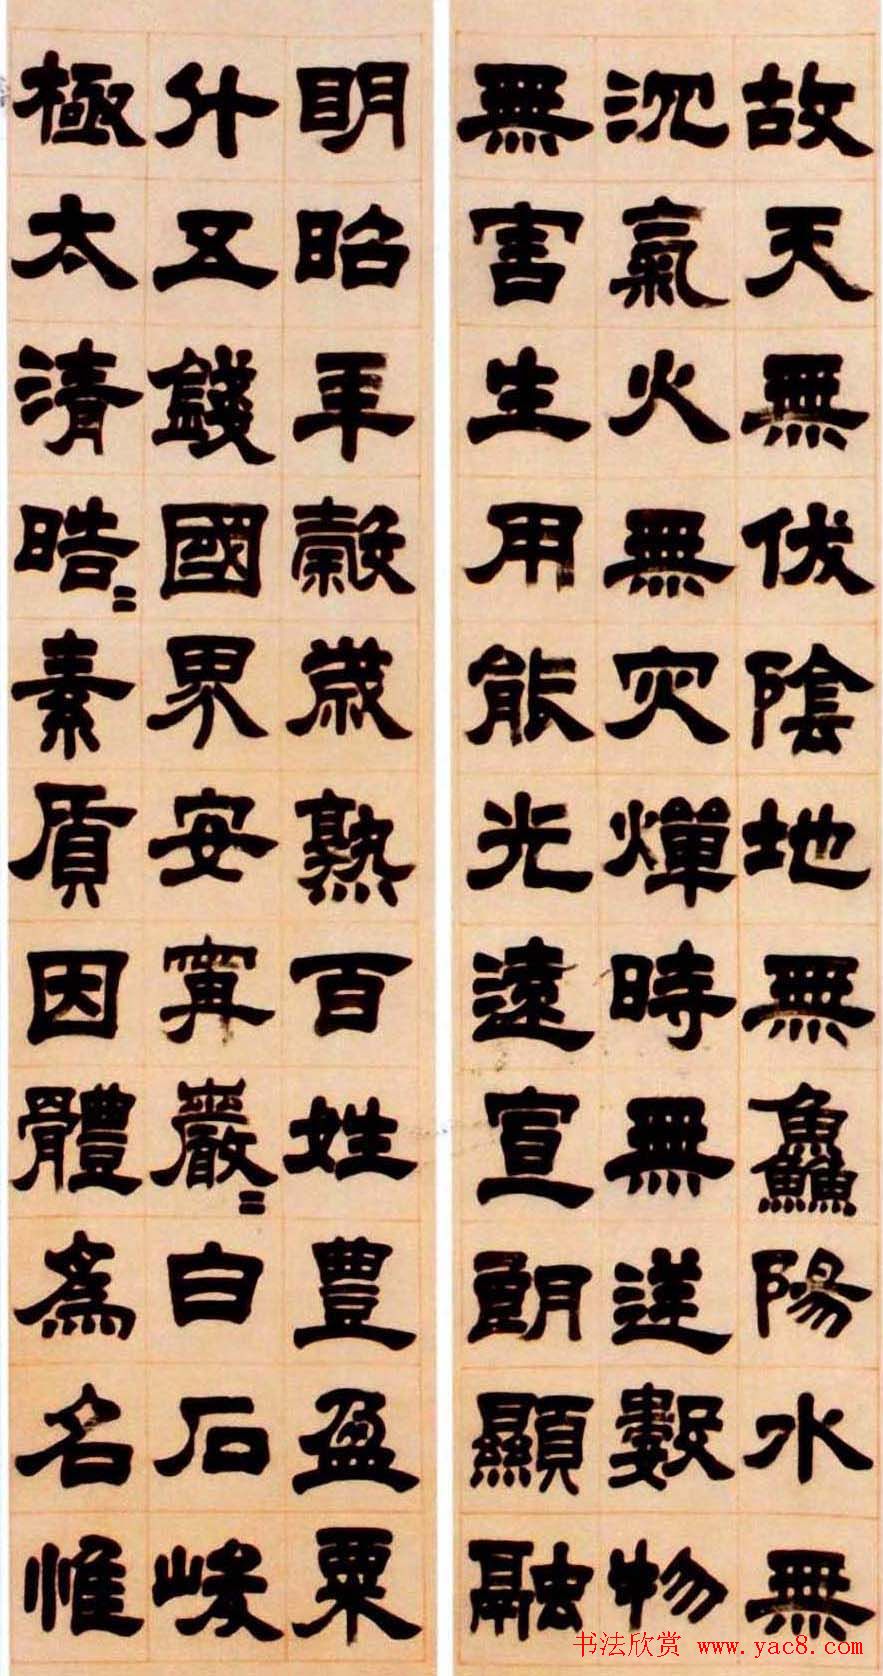 故天無伏陰地無鱻陽水無
沉氣火無灾燀時無逆數物
無害生用能光遠宣朗顯融
明昭年穀歲熟百姓豐盈粟
升五錢國界安寧巖〻白石峻
極太清晧〻素質因體爲名惟
书法欣赏 www.yac8.com